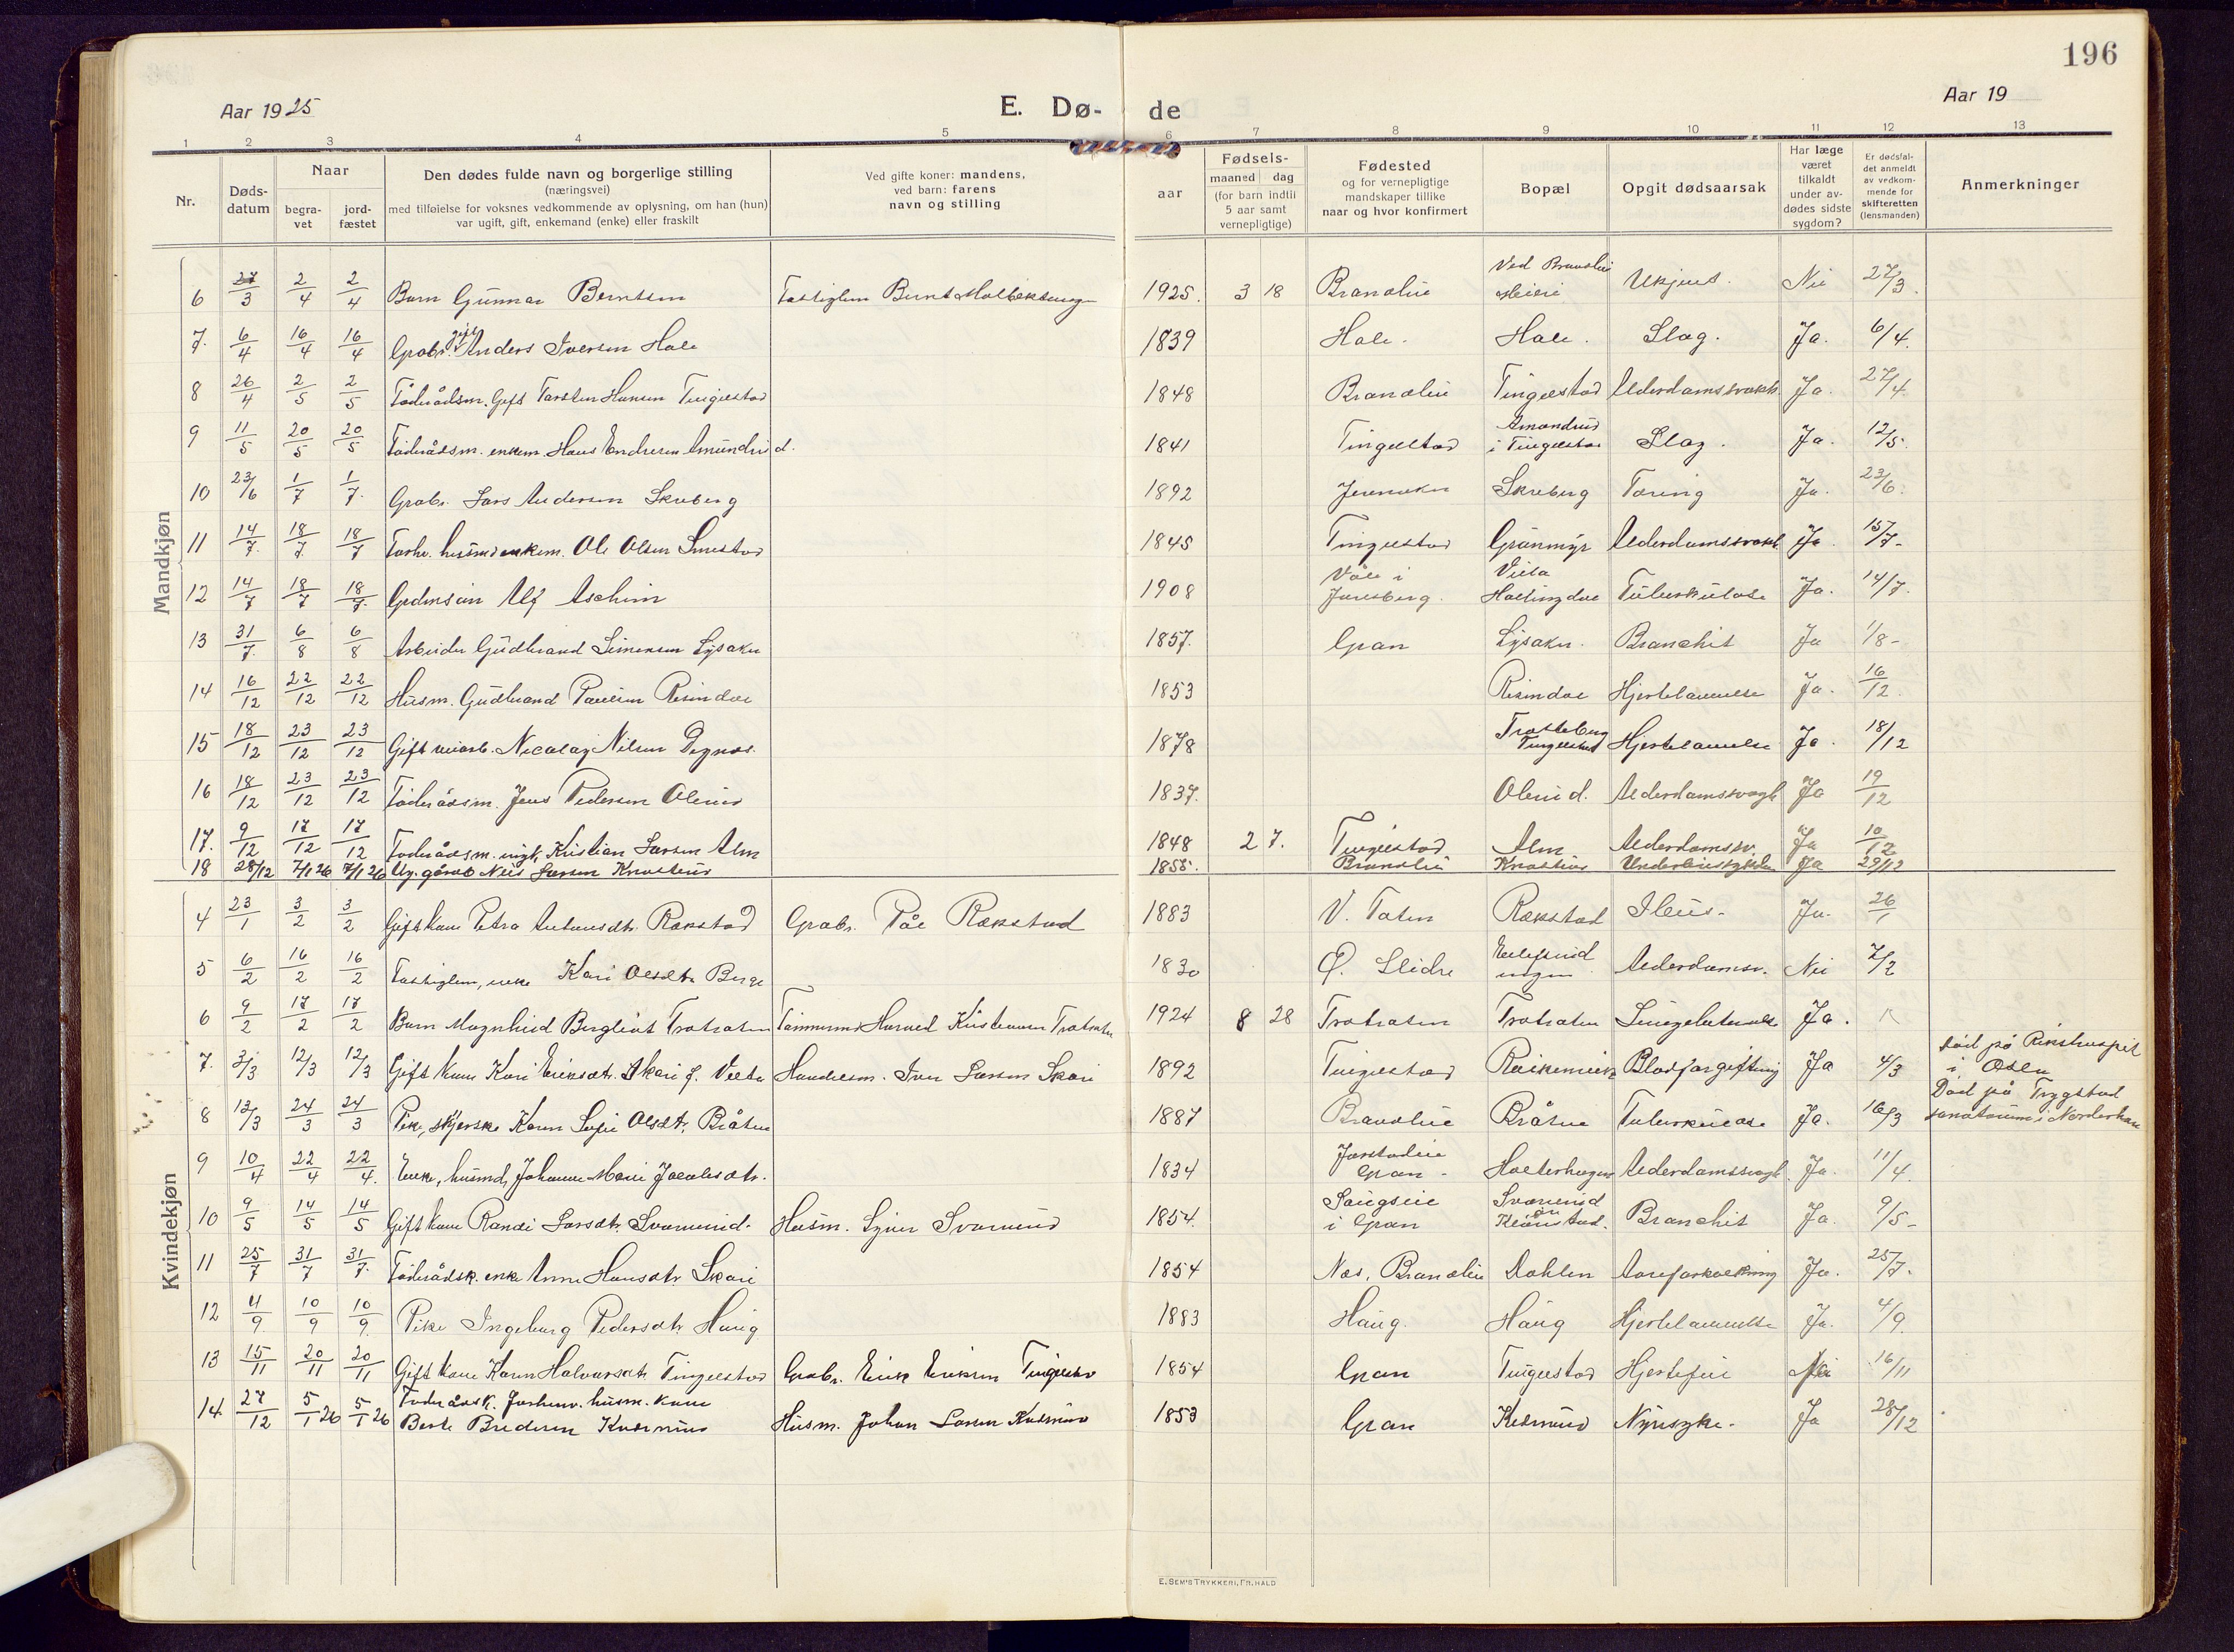 196
Aar 1925
E. Dø-
de
Aar 19
1 2 3 4 5 6 7 8 9 10 11 12 13
Nr.
Døds-
datum
Naar
begra-
vet
jord-
fæstet
Den dødes fulde navn og borgerlige stilling
(næringsvei)
med tilføielse for voksnes vedkommende av oplysning, om han (hun)
var ugift, gift, enkemand (enke) eller fraskilt
Ved gifte koner: mandens,
ved barn: farens
navn og stilling
Fødsels-
aar
maaned dag
(for barn indtil
5 aar samt
vernepligtige)
Fødested
og for vernepligtige
mandskaper tillike
naar og hvor konfirmert
Bopæl
Opgit dødsaarsak
Har læge
været
tilkaldt
under av-
dødes sidste
sygdom?
Er dødsfal-
det anmeldt
av vedkom-
mende for
skifteretten
(lensmanden)
Anmerkninger
Mandkjøn
6 27/3 2/4 2/4 Barn Gunnar Berntsen 1925. 3 18 Brandbu Ved Brandbu Meieri Ukjent. Nei 27/3.
7. 6/4 16/4 16/4 Grabr. gift Anders Iversen Hole 1839 Hole. Hole. Slag. Ja. 6/4.
8 26/4 2/5 2/5 Føderådsm. Gift Torsten Hansen Tingelstad 1848 Brandbu Tingelstad Alderdomssvakh. Ja. 27/4
9 11/5 20/5 20/5 Føderådsm. enkem. Hans Endresen Amundrud. 1841 Tingelstad Amundrud i Tingelstad Slag. Ja. 12/5.
10 23/6 1/7 1/7. Grabr. Lars Andersen Skreberg 1892 Jevnaker Skreberg Tæring Ja. 23/6.
11 14/7. 18/7. 18/7 husm. enkem. Ole Olsen Smestad 1845 Tingelstad Granmyr Alderdomssvakh. Ja. 15/7-
12 14/7 18/7 18/7. Alf Aschim 1908 Våle i Jarlsberg. Tuberkulose Ja. 14/7.
13 31/7. 6/8 6/8 Arbeider Gudbrand Simensen Lysaker 1857. Gran Lysaker. Bronchit Ja 1/8-
14 16/12 22/12 22/12 Husm. Gudbrand Paulsen Resindal 1853 Resindal Hjertelammelse Ja. 16/12.
15 18/12 23/12 23/12 Gift veiarb. Nicolay Nilsen Dignæs. 1878 Tingelstad Hjertelammelse Ja. 18/12
16 18/12 23/12 23/12 Føderådsm. Jens Pedersen Olerud 1837. Olerud. Alderdomssvagh. Ja 19/12
17. 9/12 17/12 17/12 Føderådsm. ugift, Kristian Larsen Alm 1848 2 7. Tingelstad Alm Alderdomssv. Ja 10/12
18 28/12 7/1 26 7/1 26 Ug. Nils Larsen 1855. Brandbu Ja 29/12
Kvindekjøn
4 23/1 3/2 3/2 Gift kone Petra Antonsdtr. Rækstad Grabr. Pål Rækstad 1883 V. Toten Rækstad Ileus- Ja. 26/1
5 6/2 16/2 16/2 enke Kari Olsdtr. Berge 1830 Ø. Slidre Alderdomsv. Nei 7/2
6 9/2 17/2 17/2 Barn Magnhild Bergliot 1924 8 28 Ja.
7. 3/3 12/3 12/3 Gift kone Kari Eriksdtr. Skari f. Velta Handelsm. Iver Larsen Skari 1892 Tingelstad Blodforgiftning Ja 4/3 død på Rikshospit. i Oslo
8 13/3 24/3 24/3 Pike, Karen Sofie Olsdtr. Bråten 1887 Brandbu Bråten Tuberkulose Ja. 16/3 Død på Trygstad sanatorium i Norderhov
9 10/4 22/4 22/4. Enke, husmd. Johanne Marie Jacobsdtr. 1834 Gran- Alderdomssvagh. Ja. 11/4.
10 9/5 14/5 14/5 Gift kone Randi Larsdtr. Svarverud. Husm. Svarverud 1854. i Gran Svarverud Bronchit Ja. 9/5-
11 25/7 31/7 31/7. Føderådsk. enke Anne Hansdtr. Skari 1854 Næs, Brandbu Dahlen Aareforkalkning Ja. 25/7.
12 4/9 10/9 10/9. Pike Ingeborg Pedersdtr. Haug 1883 Haug. Haug Hjertelammelse Ja. 4/9.
13 15/11 20/11 20/11 Gift kone Karen Halvorsdtr. Tingelstad Grabr. Erik Eriksen Tingelstad 1854 Gran Tingelstad Hjertefeil Nei 16/11
14. 27/12 5/1 26 5/1 26 Føderådsk. husm. kone Berte Husm. Johan Larsen 1853 Gran Nyresyke. Ja 28/12
E. SEM'S TRYKKERI, FR.HALD